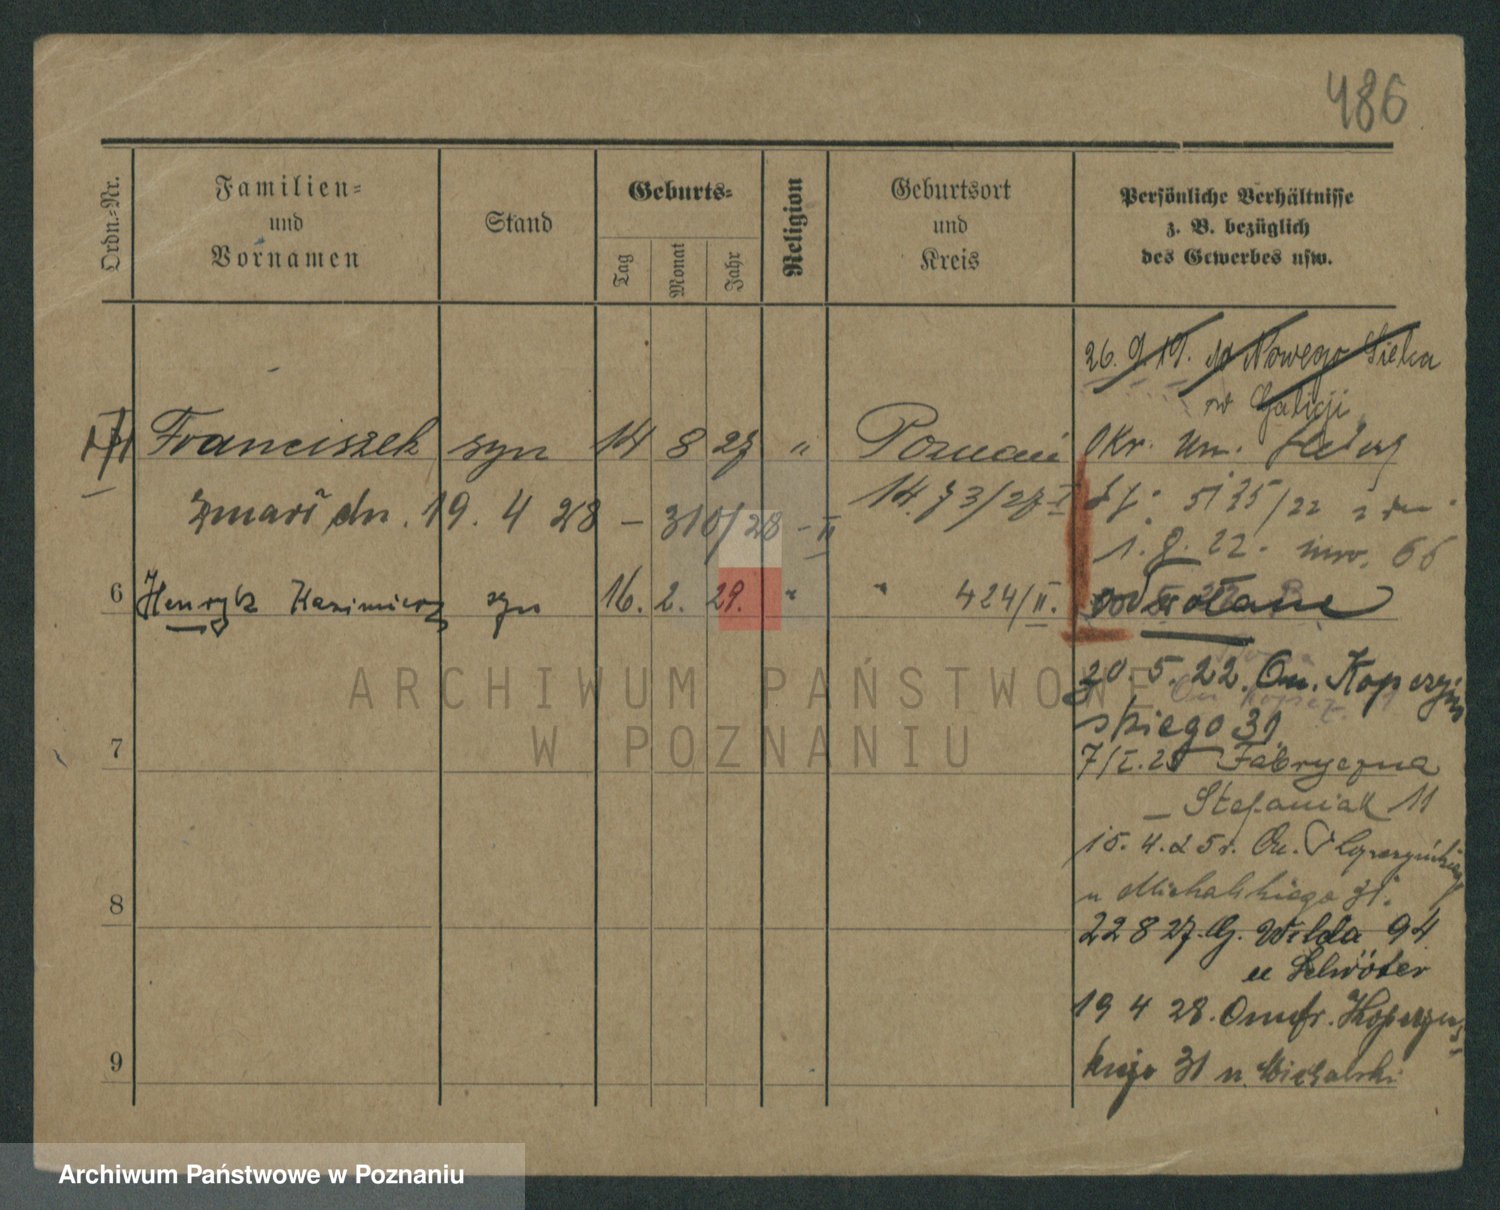 486
Ordn.-Nr.
Familien-
und
Vornamen
Stand
Geburts-
Tag
Monat
Jahr
Religion
Geburtsort
und
Kreis
Persönliche Verhältnisse
z. B. bezüglich
des Gewerbes usw.
26. 9. 19. Nowego
w Galicji
Franciszek syn 14 8 27 " Poznań
Okr. Um.
zmarł dn. 19. 4 28 – 310/28 – II
14.73/27 I
5135/22
1. 9. 22. 66
6 Henryk Kazimierz syn 16. 2. 29. " " 424/II.
odwołane
30. 5. 22. On. Kopczyń
skiego 31
ARCHIWUM PAŃSTWOWE
W POZNANIU
7
7/I. 25 Fabryczna
– Stefaniak 11
15. 4. 25 r. On.
u Michalskiego 31.
8
22 8 27. G. Wilda 94
u
19 4 28.
9
31 u. Michalski
Archiwum Państwowe w Poznaniu